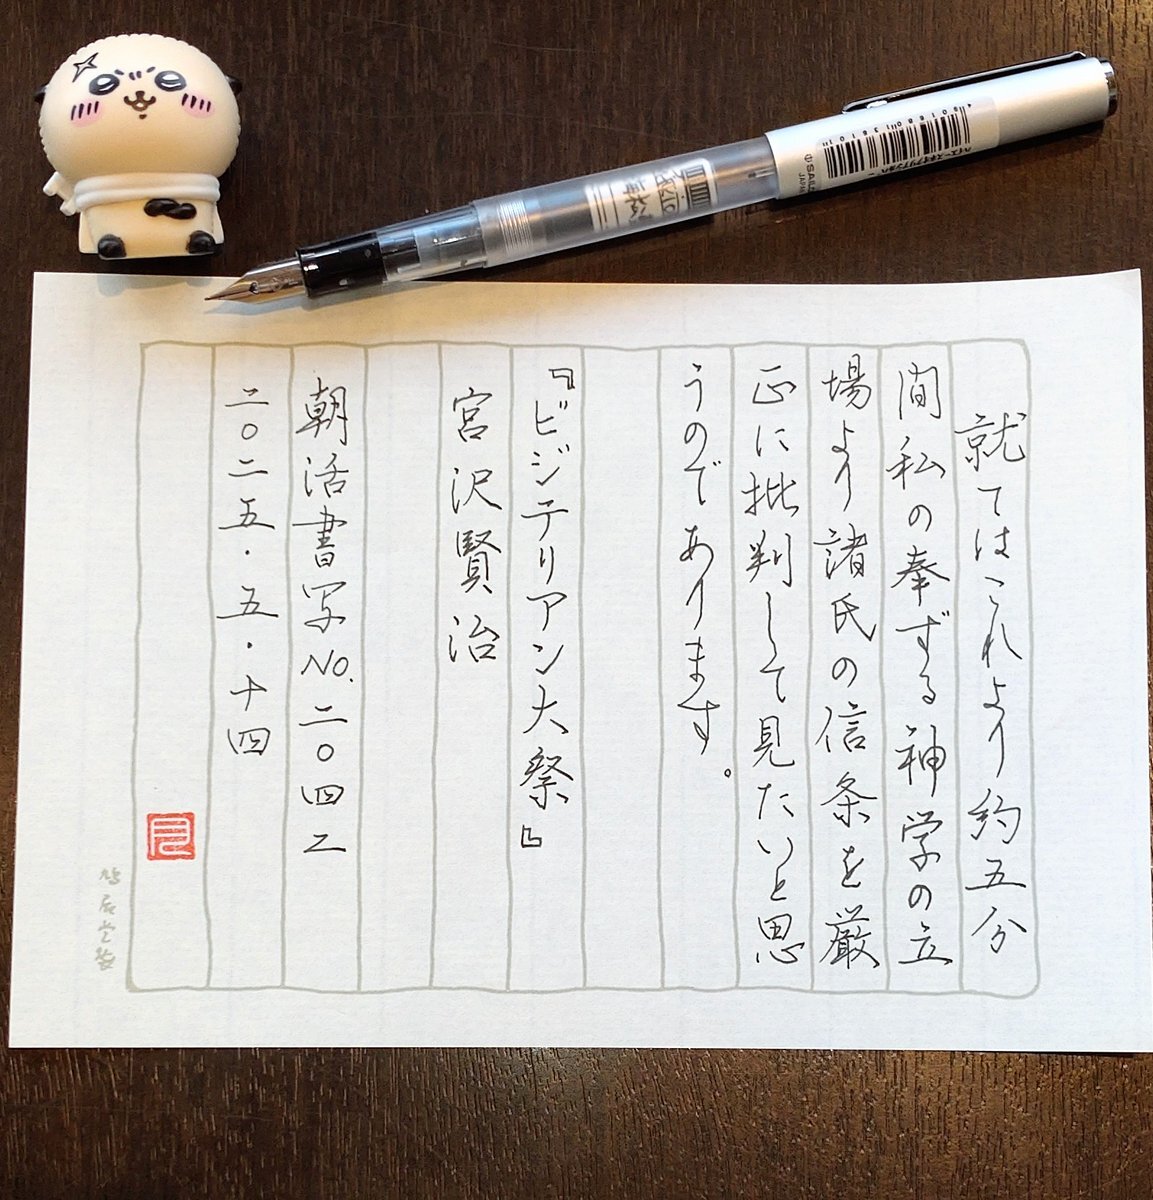 就てはこれより約五分
間私の奉ずる神学の立
場より諸氏の信条を厳
正に批判して見たいと思
うのであります。
『ビジテリアン大祭』
宮沢賢治
朝活書写No.二〇四二
二〇二五・五・十四
鳩居堂製